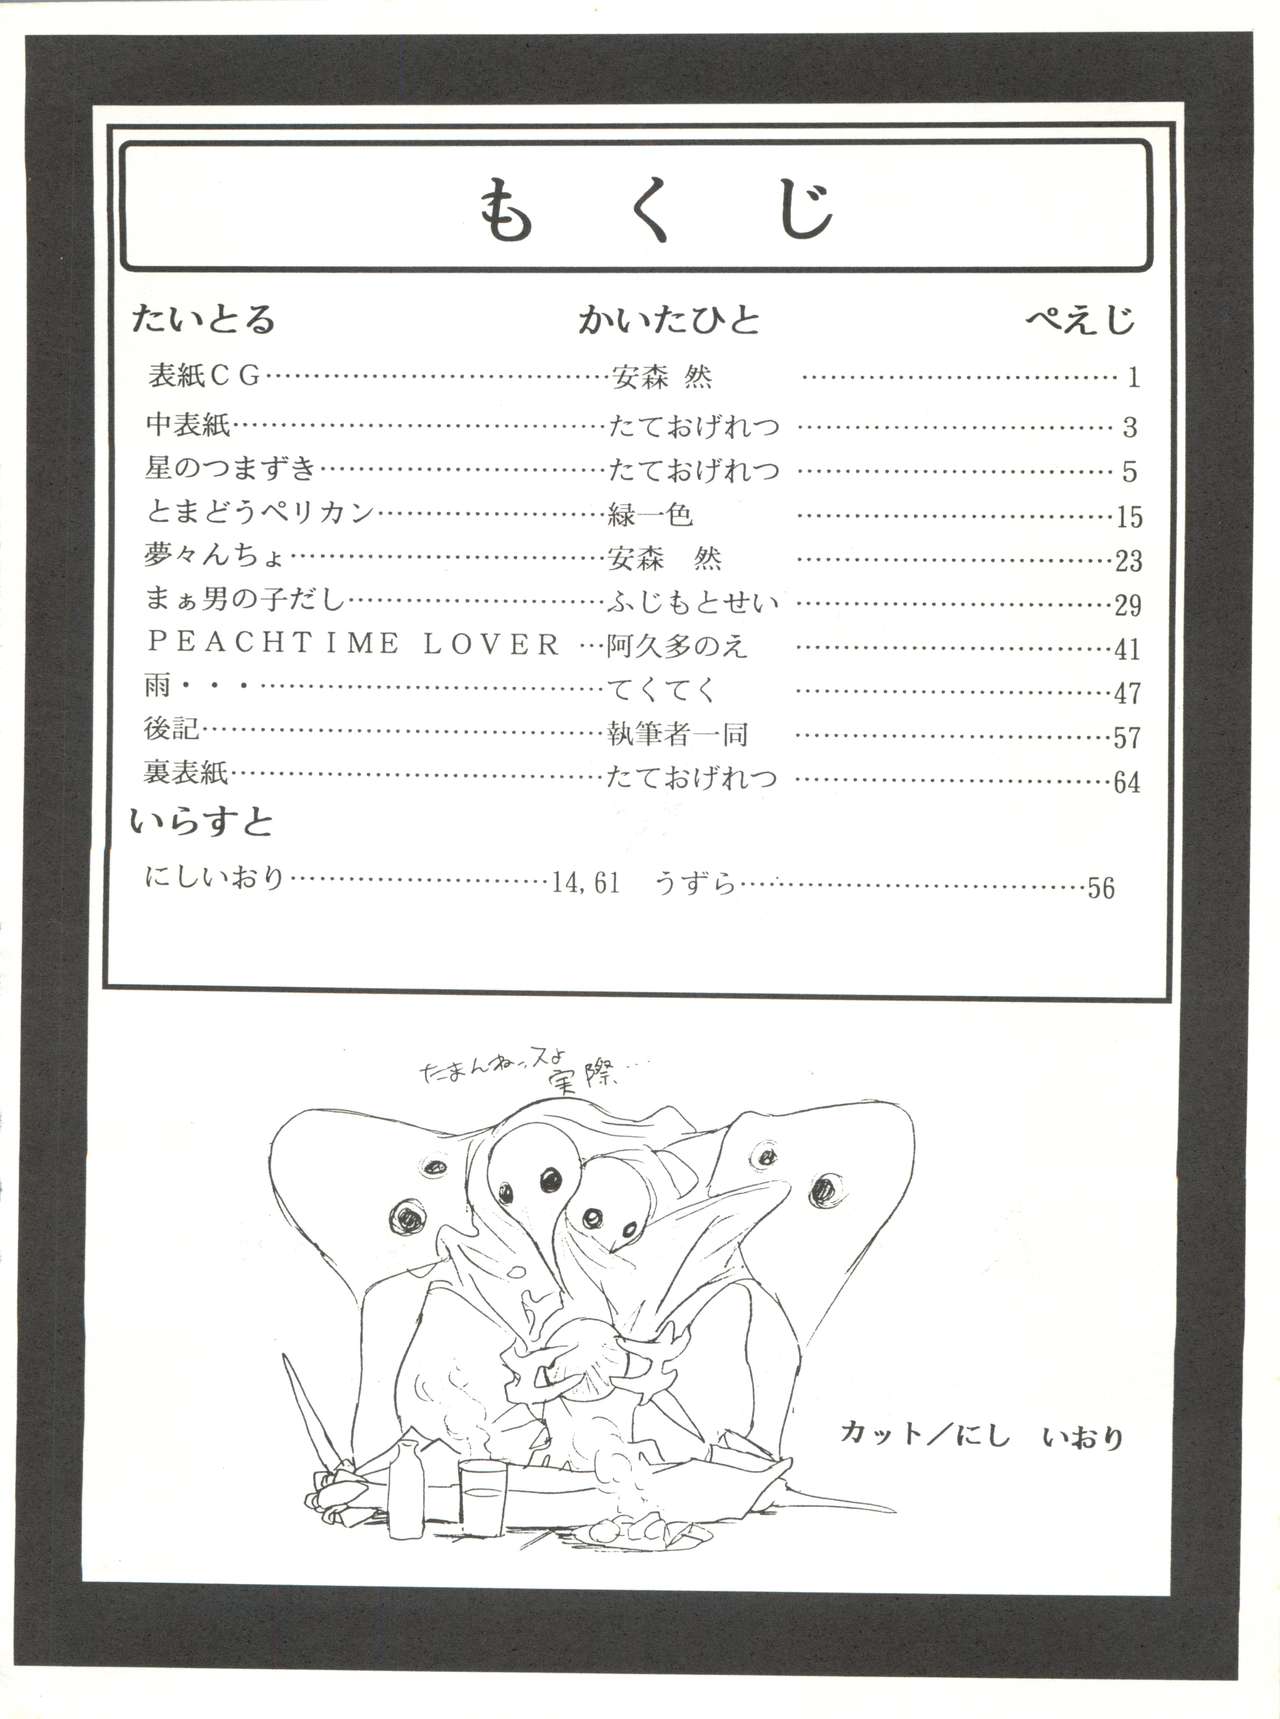 もくじ
たいとる かいたひと ぺえじ
表紙ＣＧ…………………………………安森 然 ……………………………1
中表紙…………………………………たておげれつ ……………………………3
星のつまずき…………………………たておげれつ ……………………………5
とまどうペリカン……………………緑一色 ……………………………15
夢々んちょ……………………………安森　然 ……………………………23
まぁ男の子だし………………………ふじもとせい ……………………………29
ＰＥＡＣＨＴＩＭＥ ＬＯＶＥＲ …阿久多のえ ……………………………41
雨・・・………………………………てくてく ……………………………47
後記……………………………………執筆者一同 ……………………………57
裏表紙…………………………………たておげれつ ……………………………64
いらすと
にしいおり………………………14,61　うずら………………………………56
たまんねッスよ
実際…
カット／にし　いおり